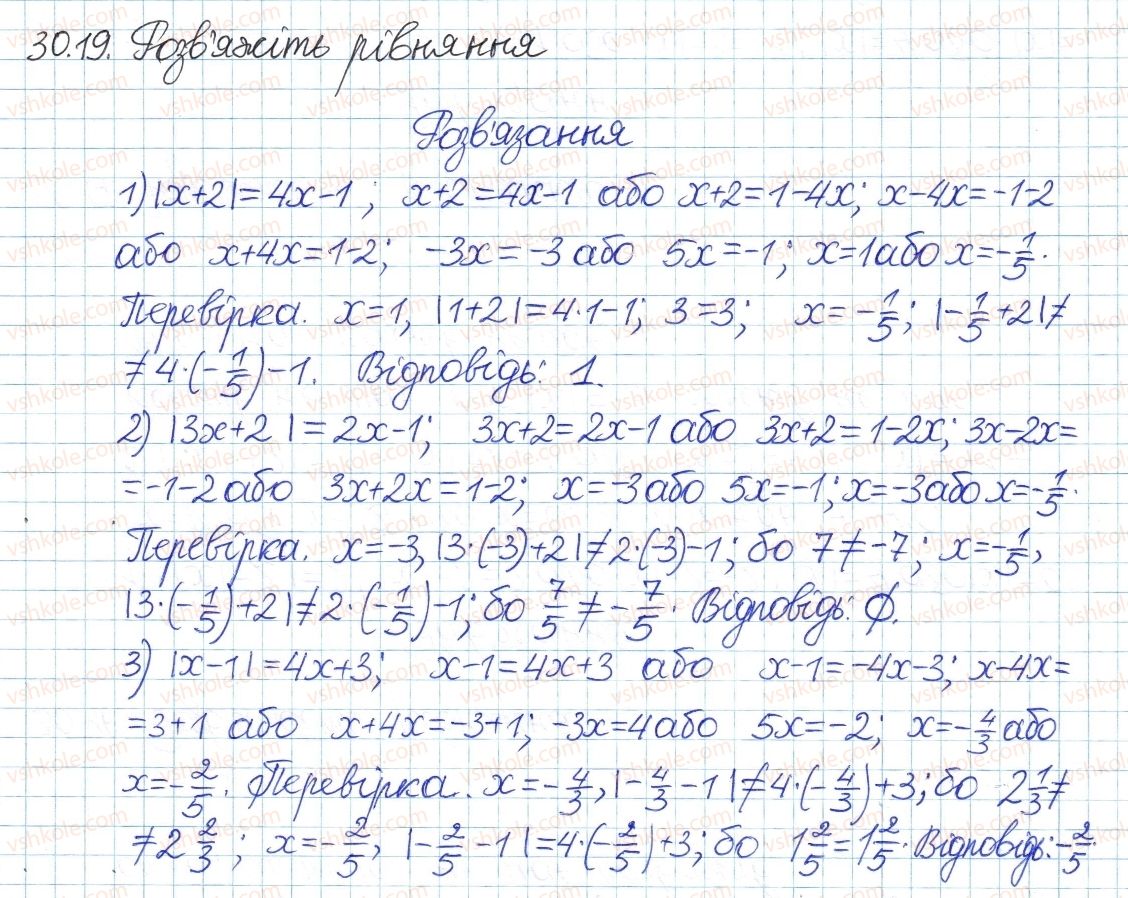 30.19. Розв'яжіть рівняння
Розв'язання
1) |x+2|=4x-1; x+2=4x-1 або x+2=1-4x; x-4x=-1-2
або x+4x=1-2; -3x=-3 або 5x=-1; x=1 або x=-1/5.
Перевірка. x=1, |1+2|=4·1-1; 3=3; x=-1/5; |-1/5+2|≠
≠4·(-1/5)-1. Відповідь: 1.
2) |3x+2|=2x-1; 3x+2=2x-1 або 3x+2=1-2x; 3x-2x=
=-1-2 або 3x+2x=1-2; x=-3 або 5x=-1; x=-3 або x=-1/5.
Перевірка. x=-3, |3·(-3)+2|≠2·(-3)-1; бо 7≠-7; x=-1/5,
|3·(-1/5)+2|≠2·(-1/5)-1; бо 7/5≠-7/5. Відповідь: ∅.
3) |x-1|=4x+3; x-1=4x+3 або x-1=-4x-3; x-4x=
=3+1 або x+4x=-3+1; -3x=4 або 5x=-2; x=-4/3 або
x=-2/5. Перевірка. x=-4/3, |-4/3-1|≠4·(-4/3)+3; бо 2 1/3≠
≠2 2/3; x=-2/5, |-2/5-1|=4·(-2/5)+3; бо 1 2/5=1 2/5. Відповідь: -2/5.